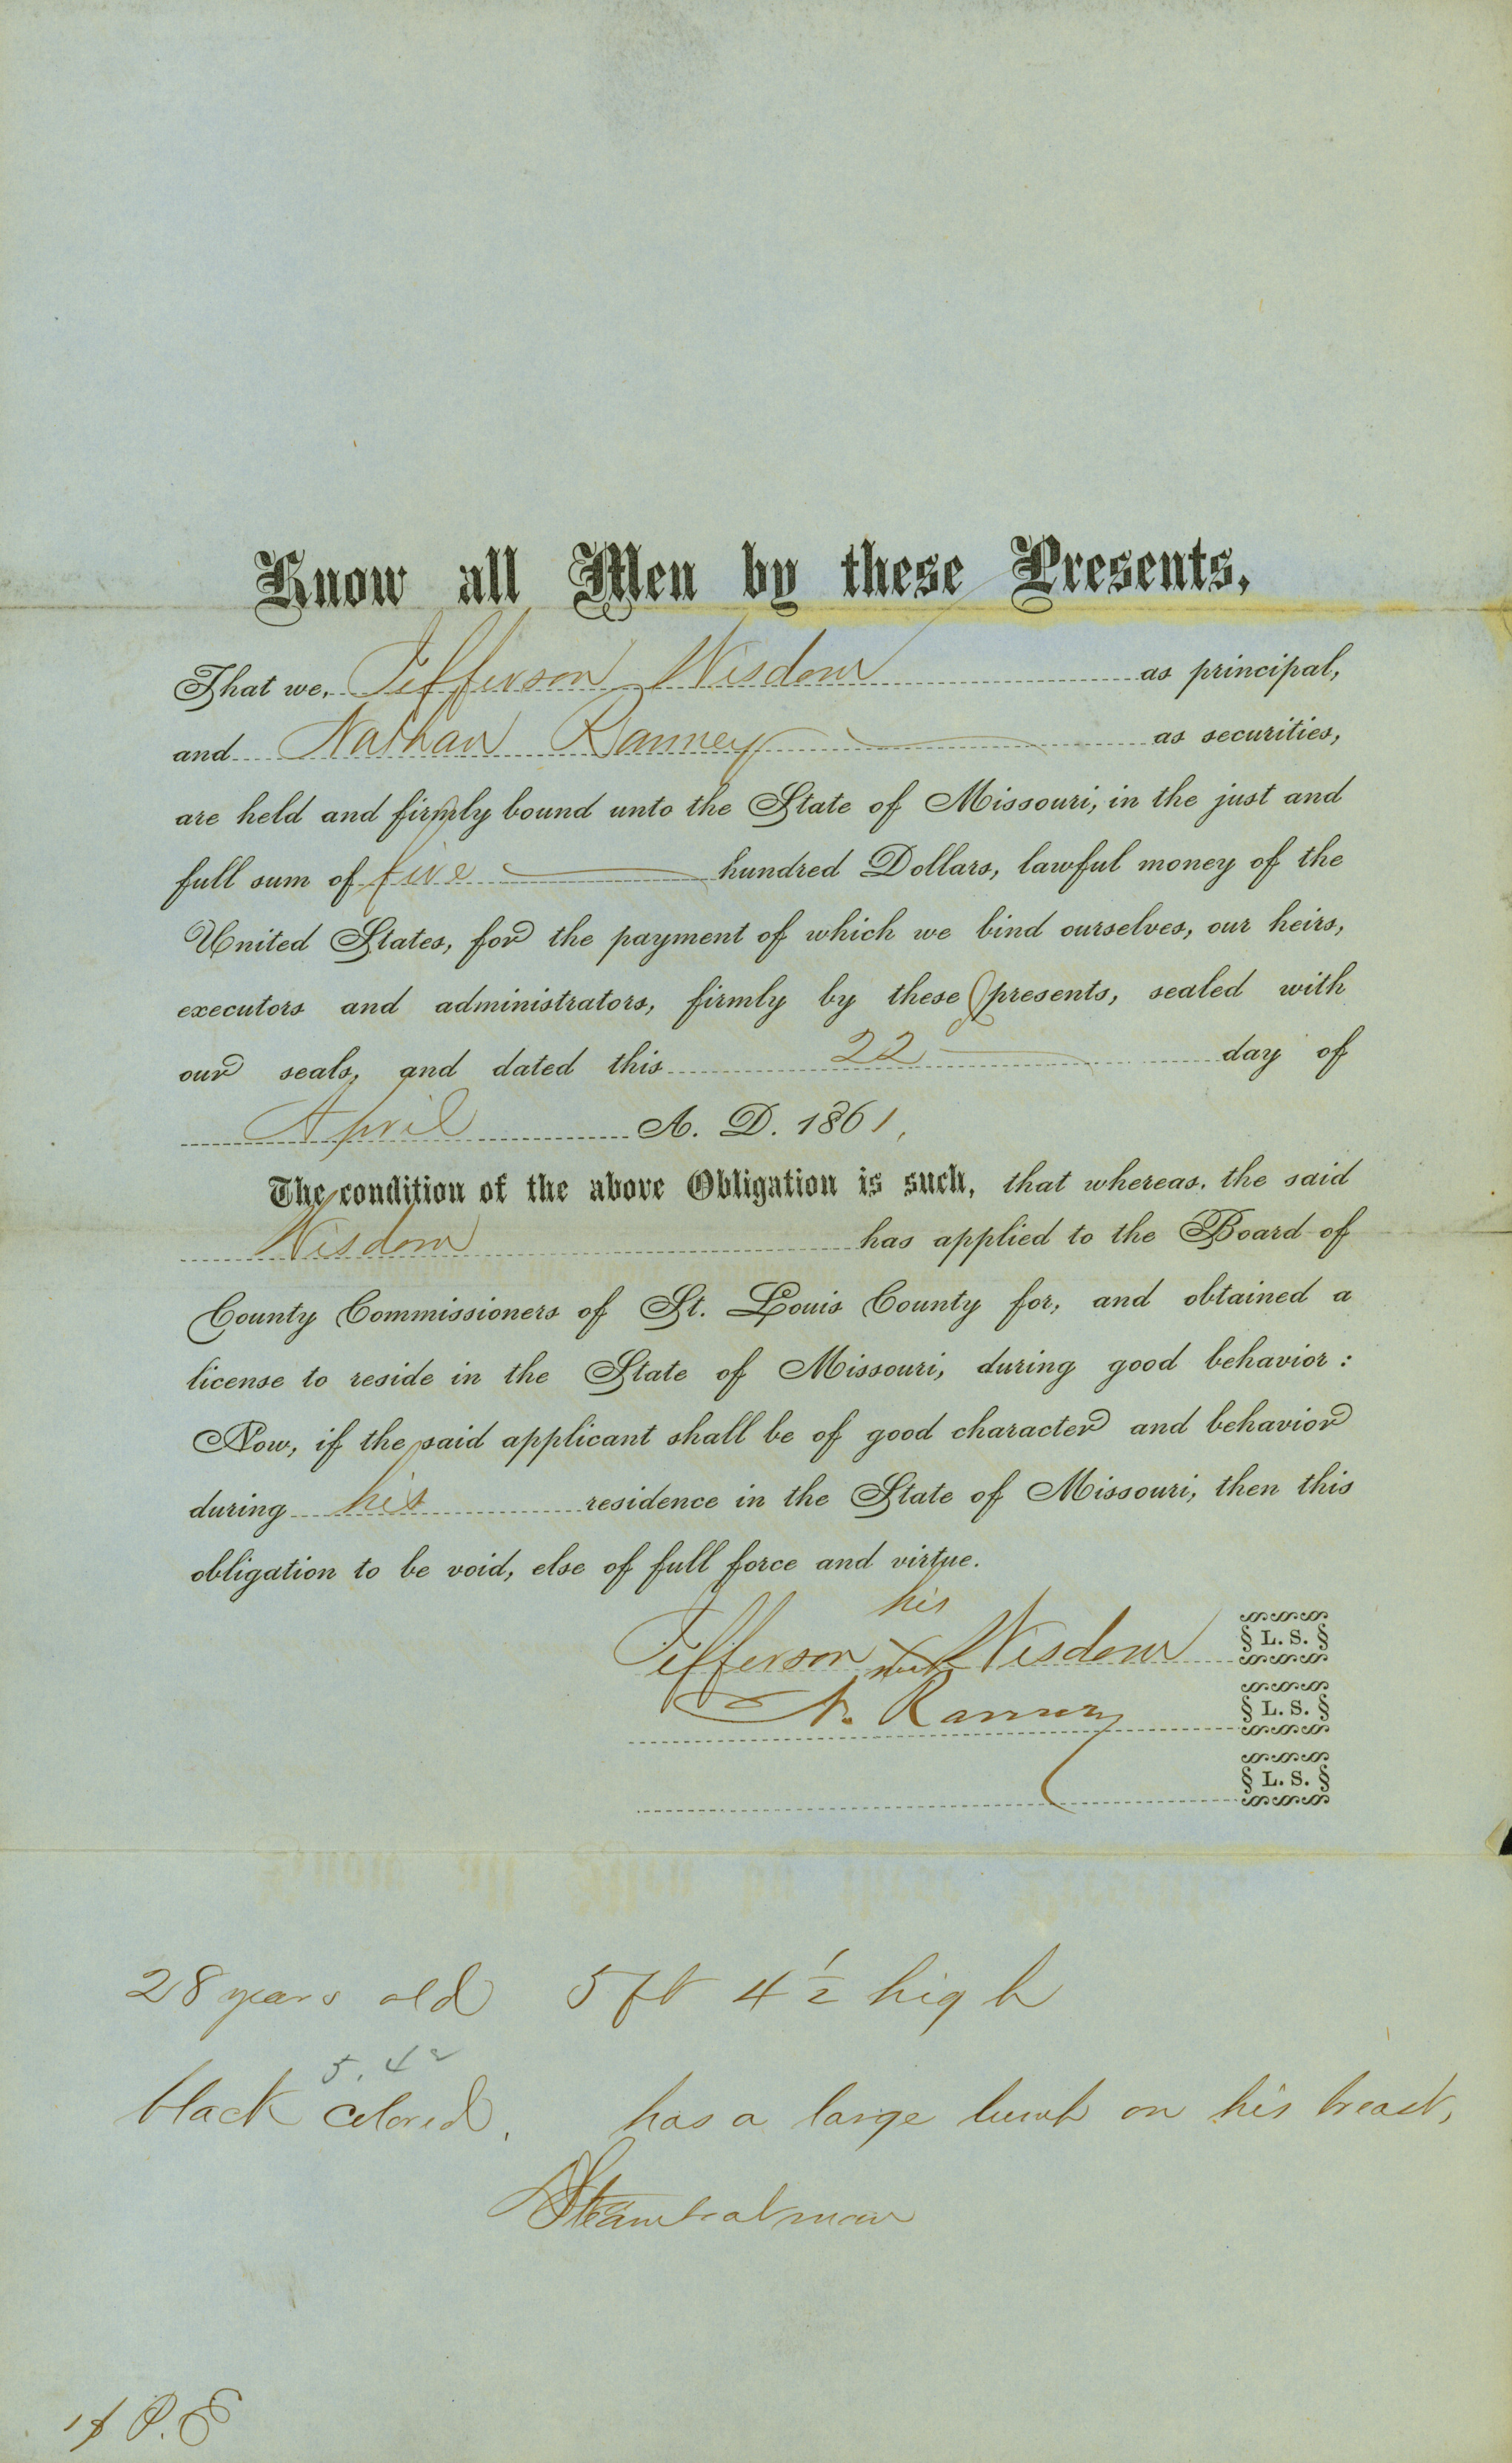 Know all Men by these Presents,
That we, Jefferson Wisdom as principal,
and Nathan Ranney as securities,
are held and firmly bound unto the State of Missouri, in the just and
full sum of five hundred Dollars, lawful money of the
United States, for the payment of which we bind ourselves, our heirs,
executors and administrators, firmly by these presents, sealed with
our seals, and dated this 22 day of
April A. D. 1861,
The condition of the above Obligation is such, that whereas, the said
Wisdom has applied to the Board of
County Commissioners of St. Louis County for, and obtained a
license to reside in the State of Missouri, during good behavior :
Now, if the said applicant shall be of good character and behavior
during his residence in the State of Missouri, then this
obligation to be void, else of full force and virtue.
his
Jefferson X Wisdom § L. S. §
mark
N. Ranney § L. S. §
§ L. S. §
28 years old 5 ft 4 1/2 high
5. 4 2
black colored. has a large lump on his breast,
Steamboatman
P. E